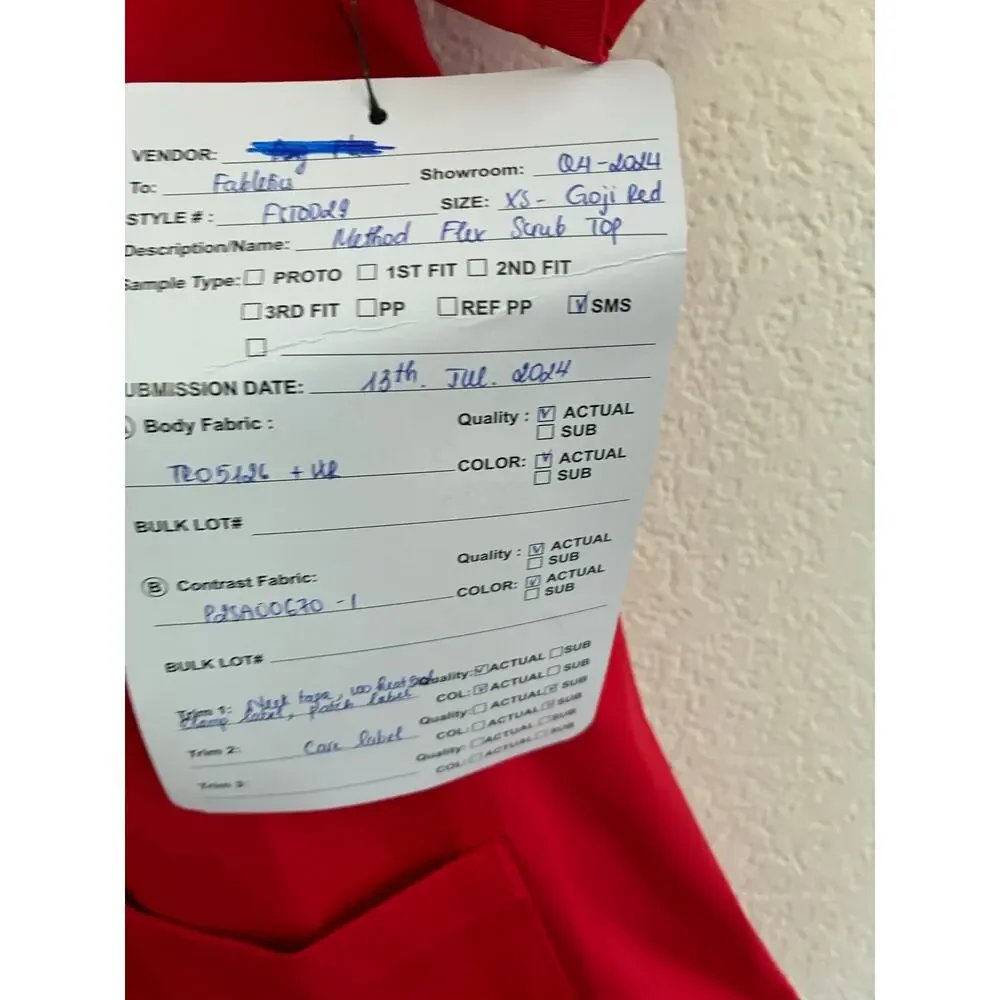 VENDOR:
To: Fabletics Showroom: Q4-2024
STYLE #: SIZE: XS - Goji Red
Description/Name: Method Flex Scrub Top
Sample Type: ☐ PROTO ☐ 1ST FIT ☐ 2ND FIT
☐ 3RD FIT ☐ PP ☐ REF PP ☑ SMS
☐
UBMISSION DATE: 13th. JUL. 2024
Body Fabric: Quality: ☑ ACTUAL
☐ SUB
TR05126 + UR COLOR: ☑ ACTUAL
☐ SUB
BULK LOT#
Quality: ☑ ACTUAL
☐ SUB
Ⓑ Contrast Fabric: COLOR: ☑ ACTUAL
☐ SUB
P2SA00670-1
BULK LOT#
Trim 1: Neck tape, heat Quality: ☑ ACTUAL ☐ SUB
label, patch label COL: ☑ ACTUAL ☐ SUB
Quality: ☐ ACTUAL ☑ SUB
Trim 2: Care label COL: ☐ ACTUAL ☑ SUB
Quality: ☐ ACTUAL ☐ SUB
Trim 3: COL: ☐ ACTUAL ☐ SUB